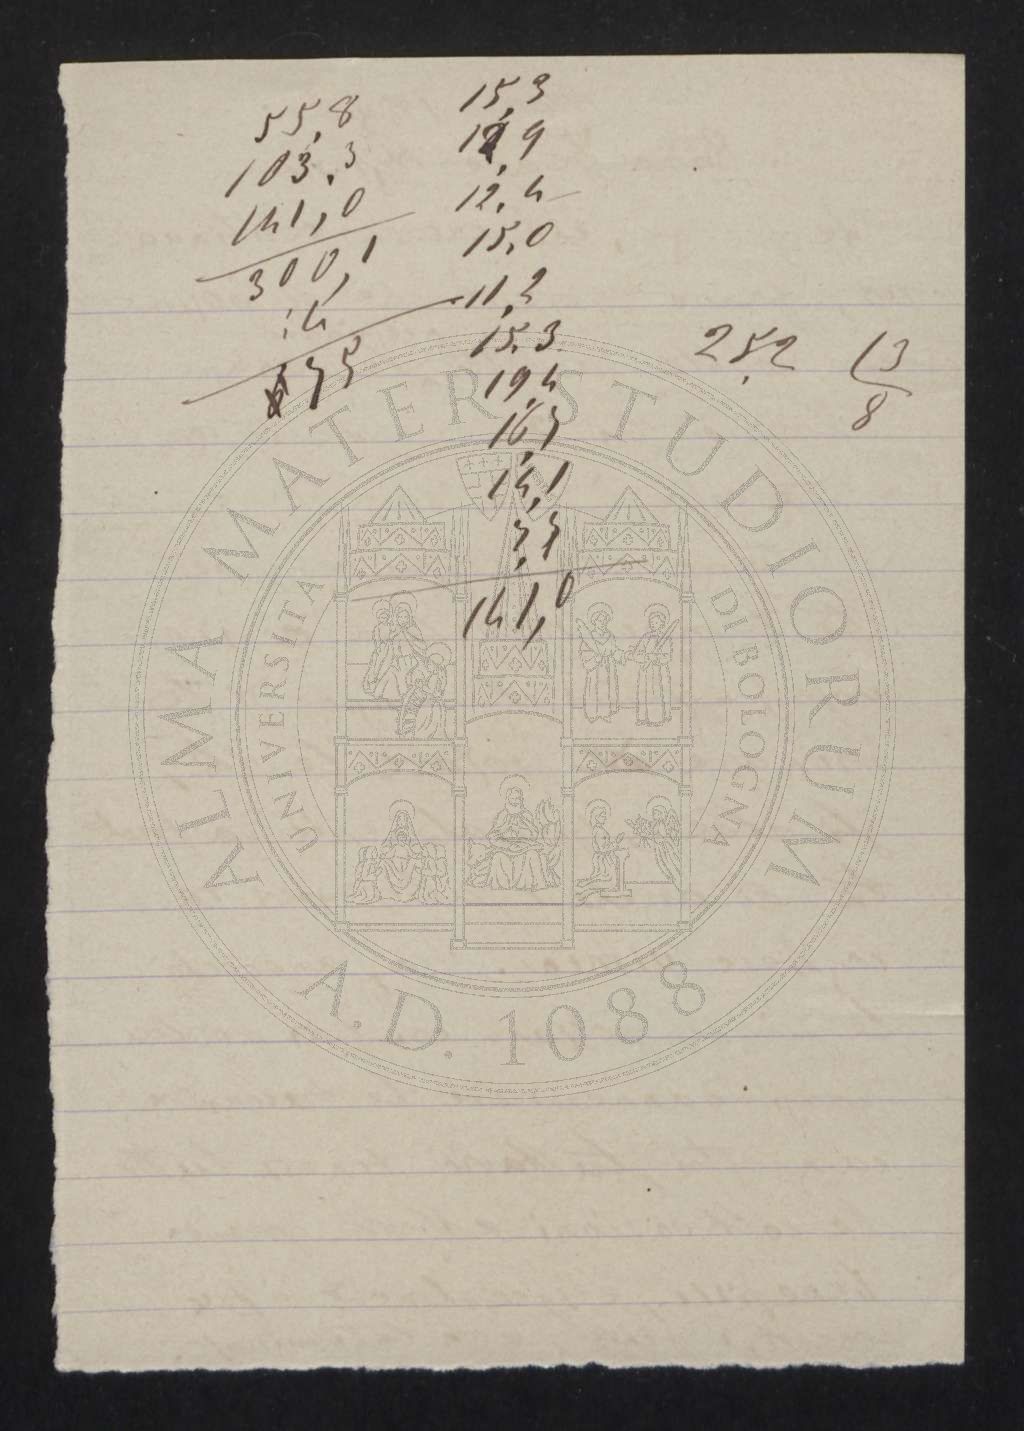 55,8
103,3
141,0
300,1
:4
75
15,3
12,9
12,4
15,0
11,2
15,3
19,4
16,7
14,1
7,7
141,0
25,2
13
8
ALMA MATER STUDIORUM
UNIVERSITA DI BOLOGNA
A.D. 1088